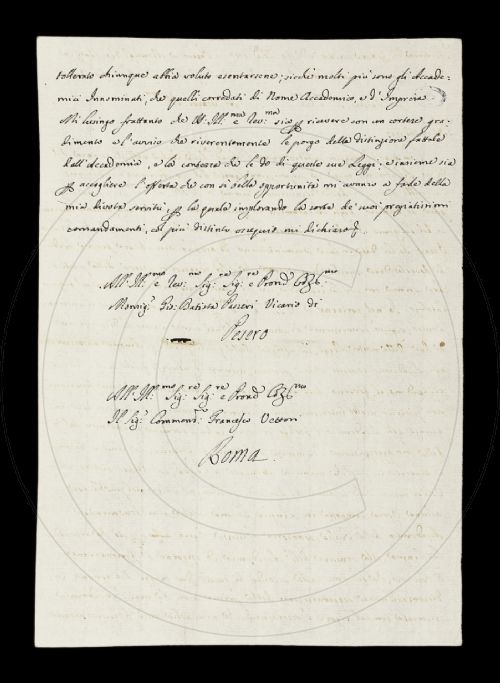 tollerato chiunque abbia voluto esentarsene; sicchè molti più sono gli Accade=
mici Innominati, che quelli corredati di Nome Accademico, e d'Impresa
Mi lusingo frattanto che V. Ill.ma e Rev.ma sia per ricevere con un cortese gra=
dimento e l'avviso che riverentemente le porgo della distinzione fattale
dall'Accademia, e la contezza che le do di queste sue Leggi; e insieme sia
per accogliere l'offerta che con sì bella opportunità mi avanzo a farle della
mia divota servitù, per la quale implorando la sorte de' suoi pregiatissimi
comandamenti, col più distinto ossequio mi dichiaro
All' Ill.mo e Rev.mo Sig.re Sig.re e Pron.
Monsig.r Gio: Batista Passeri Vicario di
Pesero
All' Ill.mo Sig.re Sig.re e Pron.
Il Sig.r Commend.re Francesco Vettori
Roma